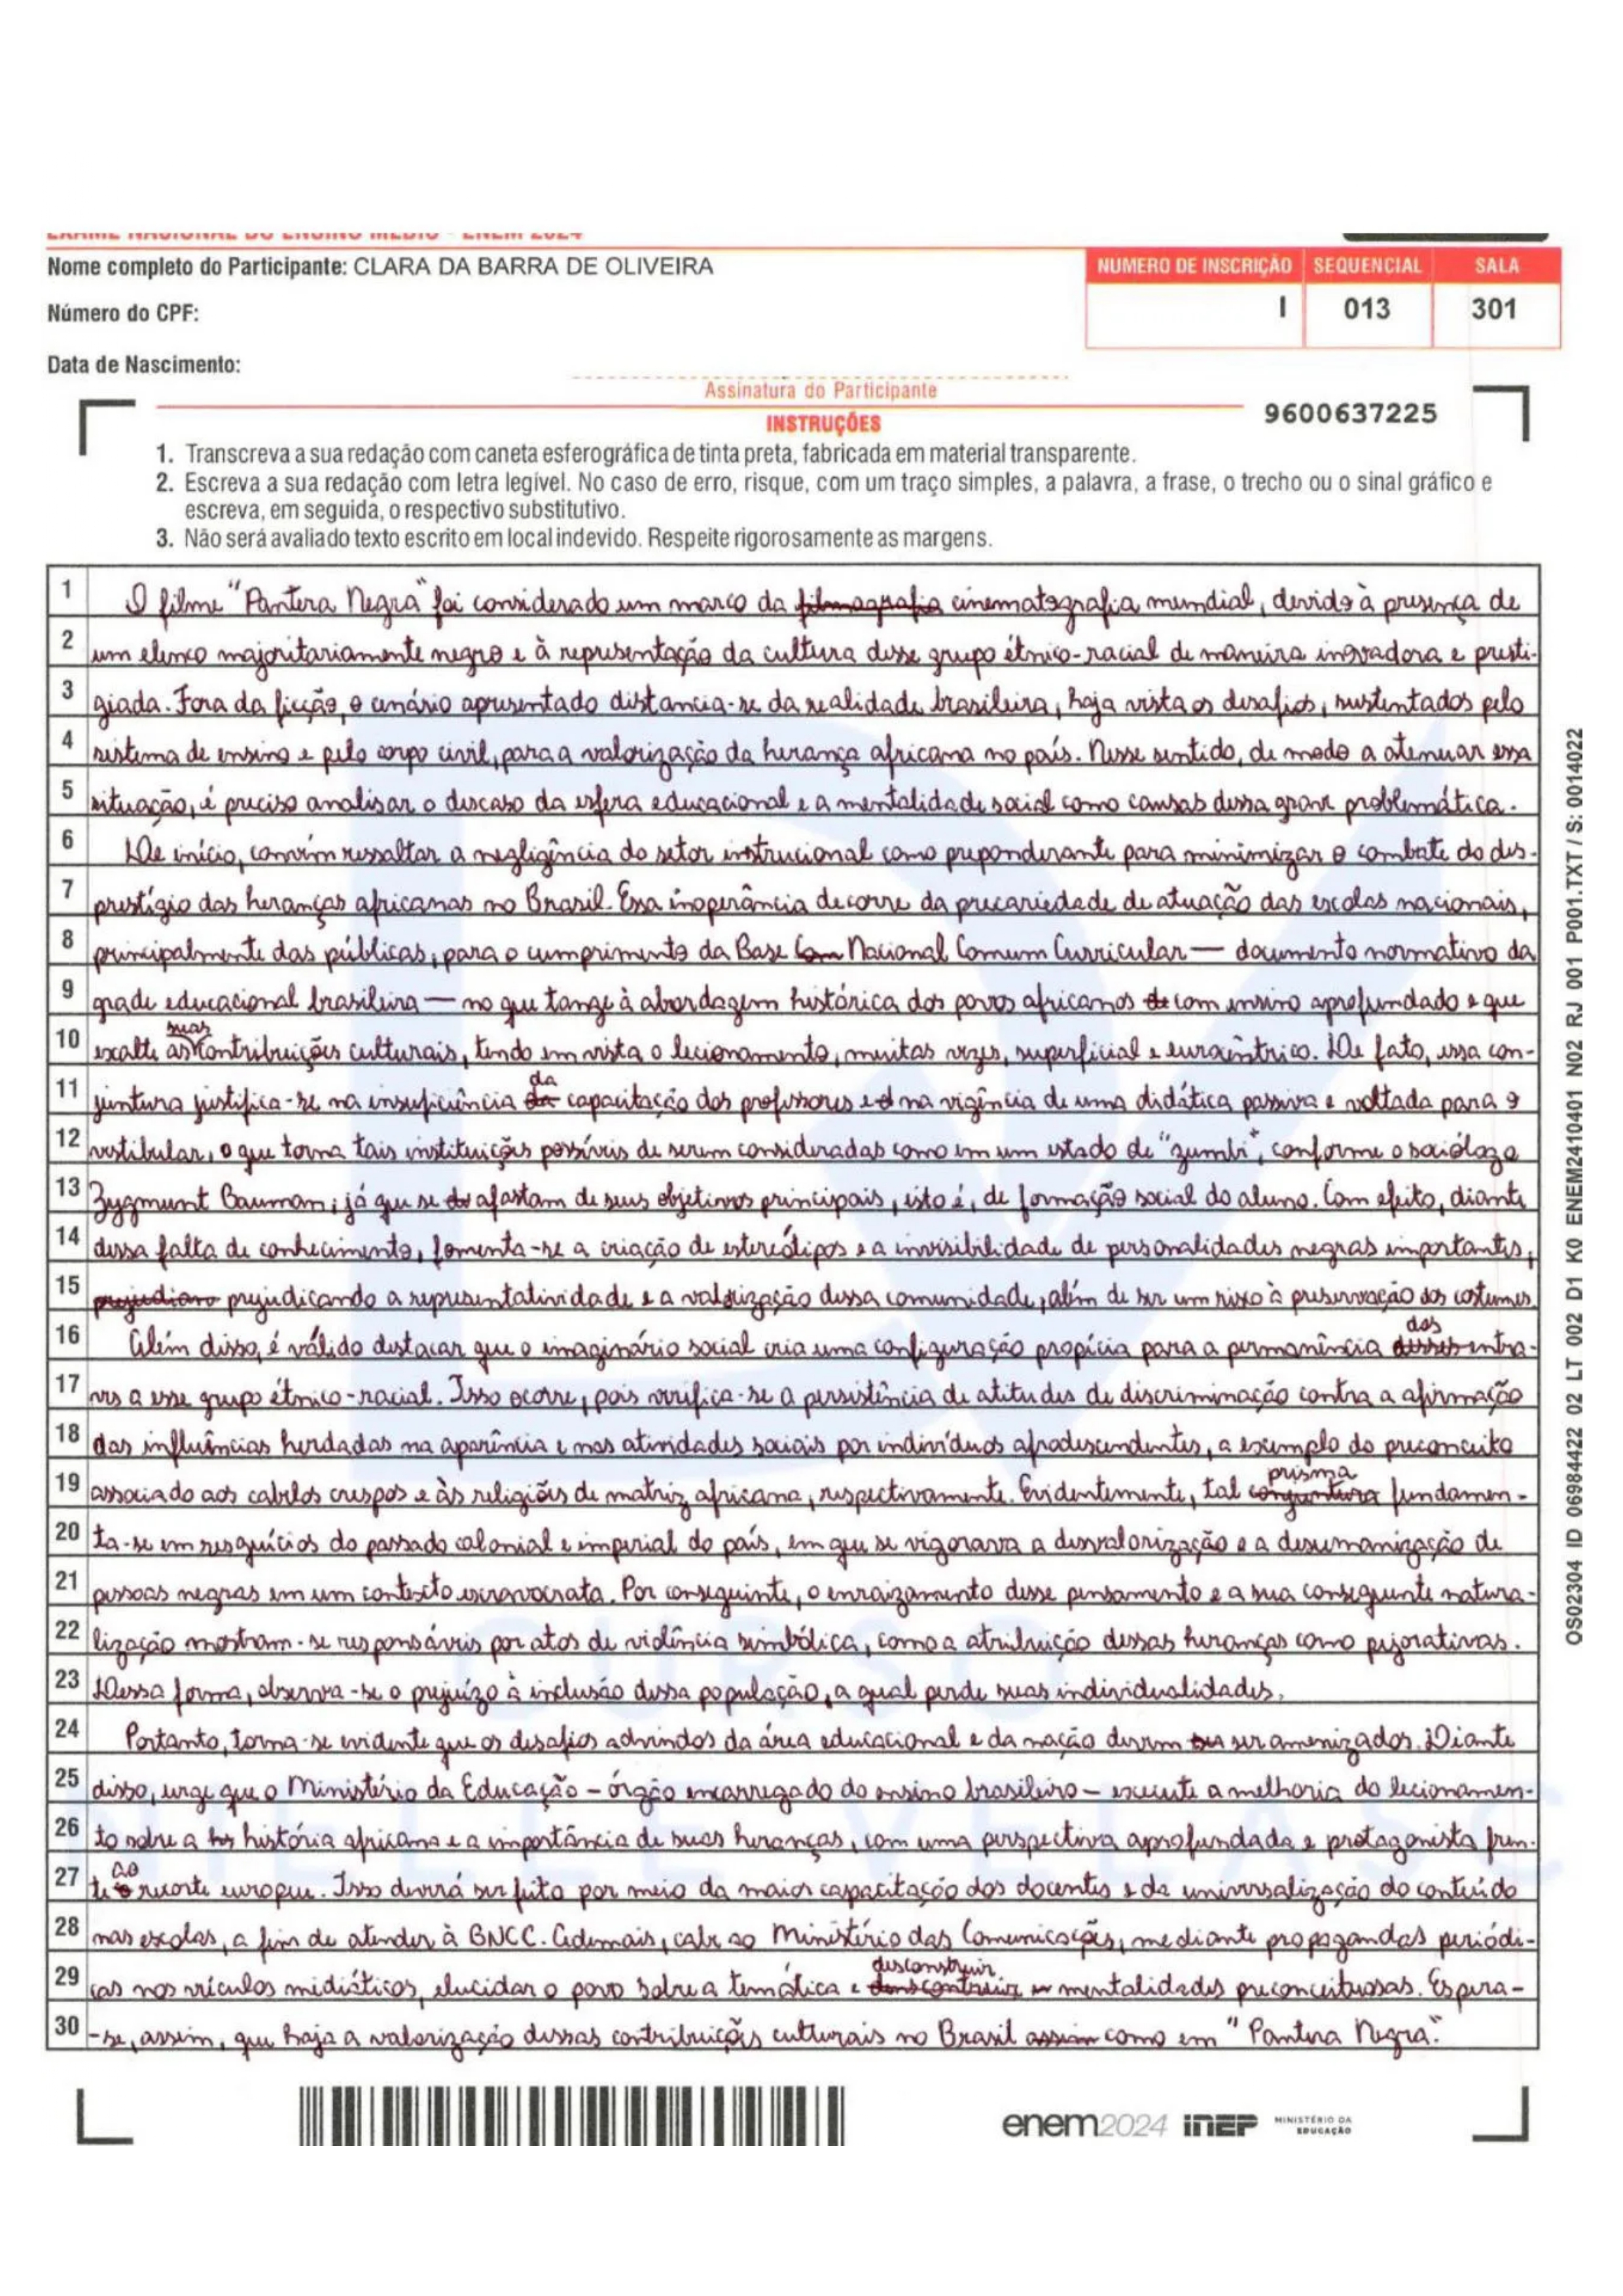 EXAME NACIONAL DO ENSINO MÉDIO - ENEM 2024
Nome completo do Participante: CLARA DA BARRA DE OLIVEIRA
Número do CPF:
Data de Nascimento:
NUMERO DE INSCRIÇÃO SEQUENCIAL SALA
013 301
Assinatura do Participante
INSTRUÇÕES
9600637225
1. Transcreva a sua redação com caneta esferográfica de tinta preta, fabricada em material transparente.
2. Escreva a sua redação com letra legível. No caso de erro, risque, com um traço simples, a palavra, a frase, o trecho ou o sinal gráfico e
escreva, em seguida, o respectivo substitutivo.
3. Não será avaliado texto escrito em local indevido. Respeite rigorosamente as margens.
1 O filme "Pantera Negra" foi considerado um marco da filmografia cinematografia mundial, devido à presença de
2 um elenco majoritariamente negro e à representação da cultura desse grupo étnico-racial de maneira inovadora e presti-
3 giada. Fora da ficção, o cenário apresentado distancia-se da realidade brasileira, haja vista os desafios, sustentados pelo
4 sistema de ensino e pelo corpo civil, para a valorização da herança africana no país. Nesse sentido, de modo a atenuar essa
5 situação, é preciso analisar o descaso da esfera educacional e a mentalidade social como causas dessa grave problemática.
6 De início, convém ressaltar a negligência do setor instrucional como preponderante para minimizar o combate do des-
7 prestígio das heranças africanas no Brasil. Essa inoperância decorre da precariedade de atuação das escolas nacionais,
8 principalmente das públicas, para o cumprimento da Base Com Nacional Comum Curricular — documento normativo da
9 grade educacional brasileira — no que tange à abordagem histórica dos povos africanos de com ensino aprofundado e que
10 exalte as suas contribuições culturais, tendo em vista o lecionamento, muitas vezes, superficial e eurocêntrico. De fato, essa con-
11 juntura justifica-se na insuficiência da capacitação dos professores e na vigência de uma didática passiva e voltada para o
12 vestibular, o que torna tais instituições possíveis de serem consideradas como em um estado de "zumbi", conforme o sociólogo
13 Zygmunt Bauman, já que se afastam de seus objetivos principais, isto é, de formação social do aluno. Com efeito, diante
14 dessa falta de conhecimento, fomenta-se a criação de estereótipos e a invisibilidade de personalidades negras importantes,
15 prejudiano prejudicando a representatividade e a valorização dessa comunidade, além de ser um risco à preservação dos costumes.
16 Além disso, é válido destacar que o imaginário social cria uma configuração propícia para a permanência desses dos entra-
17 ves a esse grupo étnico-racial. Isso ocorre, pois verifica-se a persistência de atitudes de discriminação contra a afirmação
18 das influências herdadas na aparência e nas atividades sociais por indivíduos afrodescendentes, a exemplo do preconceito
19 associado aos cabelos crespos e às religiões de matriz africana, respectivamente. Evidentemente, tal conjuntura prisma fundamen-
20 ta-se em resquícios do passado colonial e imperial do país, em que se vigorava a desvalorização e a desumanização de
21 pessoas negras em um contexto escravocrata. Por conseguinte, o enraizamento desse pensamento e a sua conseguente natura-
22 lização mostram-se responsáveis por atos de violência simbólica, como a atribuição dessas heranças como pejorativas.
23 Dessa forma, observa-se o prejuízo à inclusão dessa população, a qual perde suas individualidades.
24 Portanto, torna-se evidente que os desafios advindos da área educacional e da nação devem ser amenizados. Diante
25 disso, urge que o Ministério da Educação – órgão encarregado do ensino brasileiro – execute a melhoria do lecionamen-
26 to sobre a história africana e a importância de suas heranças, com uma perspectiva aprofundada e protagonista fren-
27 te ao recorte europeu. Isso deverá ser feito por meio da maior capacitação dos docentes e da universalização do conteúdo
28 nas escolas, a fim de atender à BNCC. Ademais, cabe ao Ministério das Comunicações, mediante propagandas periódi-
29 cas nos veículos midiáticos, elucidar o povo sobre a temática e desconstruir mentalidades preconceituosas. Espera-
30 -se, assim, que haja a valorização dessas contribuições culturais no Brasil assim como em "Pantera Negra".
enem2024 inep MINISTÉRIO DA
EDUCAÇÃO
QS02304 ID 06984422 02 LT 002 D1 K0 ENEM2410401 N02 RJ 001 P001.TXT / S: 0014022
CURSO